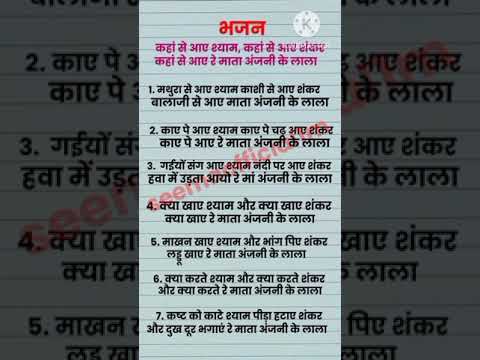 भजन
कहां से आए श्याम, कहां से आए शंकर
कहां से आए रे माता अंजनी के लाला
1. मथुरा से आए श्याम काशी से आए शंकर
बालाजी से आए माता अंजनी के लाला
2. काए पे आए श्याम काए पे चढ़ आए शंकर
काए पे आए रे माता अंजनी के लाला
3. गईयों संग आए श्याम नंदी पर आए शंकर
हवा में उड़ता आयो रे मां अंजनी के लाला
4. क्या खाए श्याम और क्या खाए शंकर
क्या खाए रे माता अंजनी के लाला
5. माखन खाए श्याम और भांग पिए शंकर
लड्डू खाए रे माता अंजनी के लाला
6. क्या करते श्याम और क्या करते शंकर
और क्या करते रे माता अंजनी के लाला
7. कष्ट को काटे श्याम पीड़ा हटाए शंकर
और दुख दूर भगाएं रे माता अंजनी के लाला